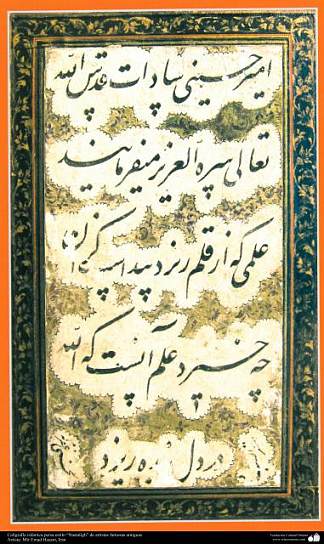 امیر حسینی سادات قدس الله
تعالی سره العزیز میفرمایند
علمی که از قلم ریزد پیداست کزان
چه خیزد علم آنست که الله
در دل ریزد
Caligrafía islámica persa estilo "Nastaligh" de artistas famosos antiguos
Artista: Mir Emad Hasani, Iran